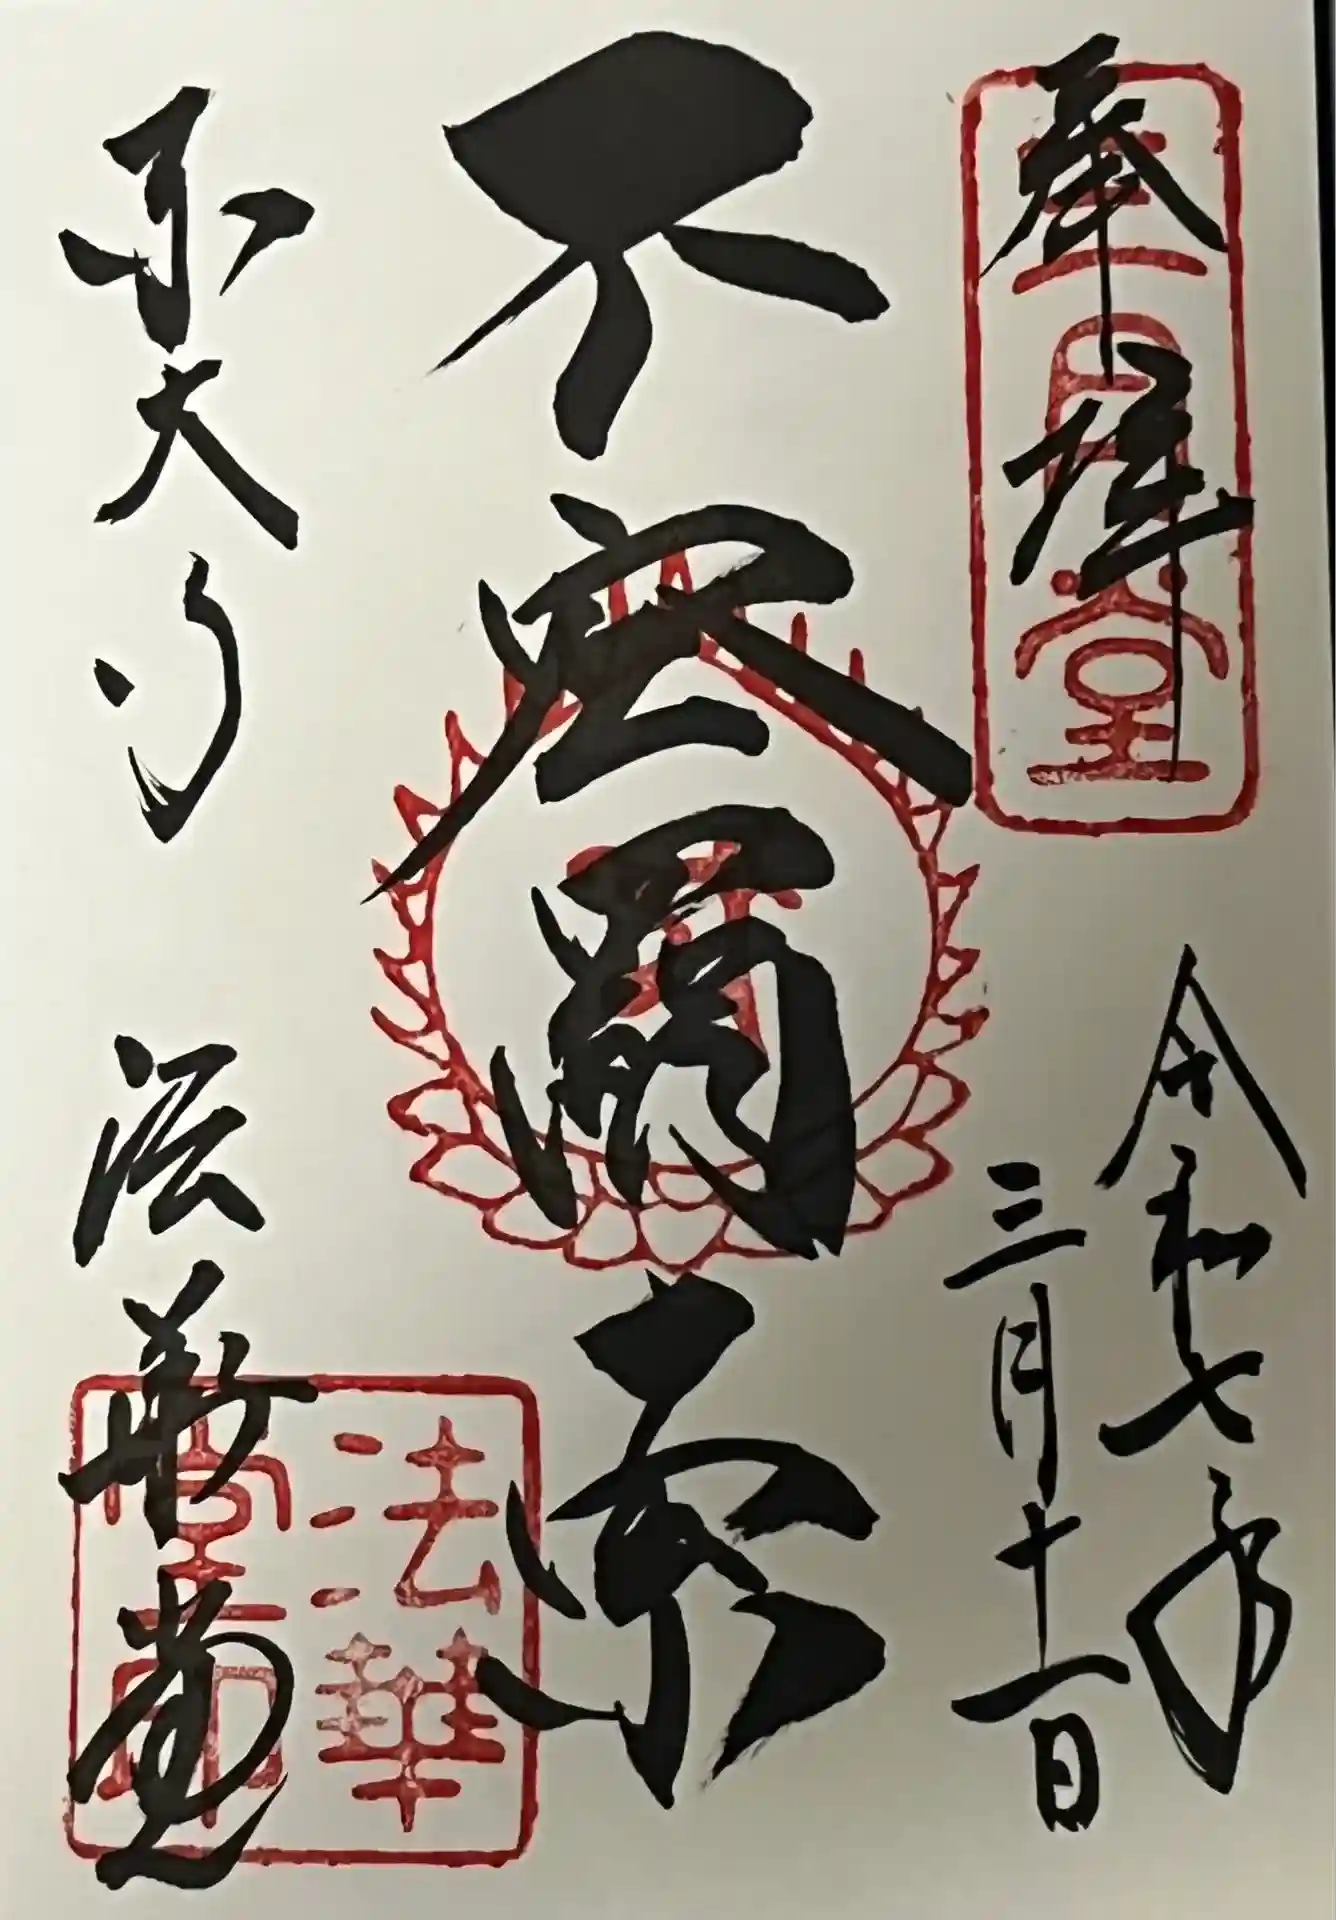 奉拝
三月堂
令和七年
三月十一日
不空羂索
東大寺 法華堂
法華
堂印